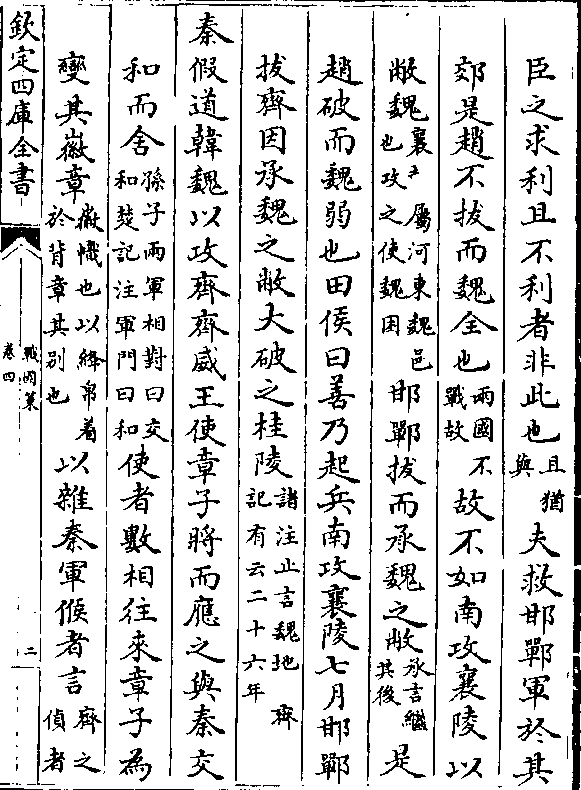 臣之求利且不利者非此也且猶與夫救邯鄲軍於其
郊是趙不拔而魏全也兩國不戰故故不如南攻襄陵以
敝魏襄王屬河東魏邑也攻之使魏困邯鄲拔而承魏之敝承言繼其後是
趙破而魏弱也田侯曰善乃起兵南攻襄陵七月邯鄲
拔齊因承魏之敝大破之桂陵諸注止言魏地齊記有云二十六年
秦假道韓魏以攻齊齊威王使章子將而應之與秦交
和而舍孫子兩軍相對曰交和楚記注軍門曰和使者數相往來章子為
變其徽章徽幟也以絳帛着於背章其別也以雜秦軍候者言齊之偵者
欽定四庫全書
戰國策
卷四
二